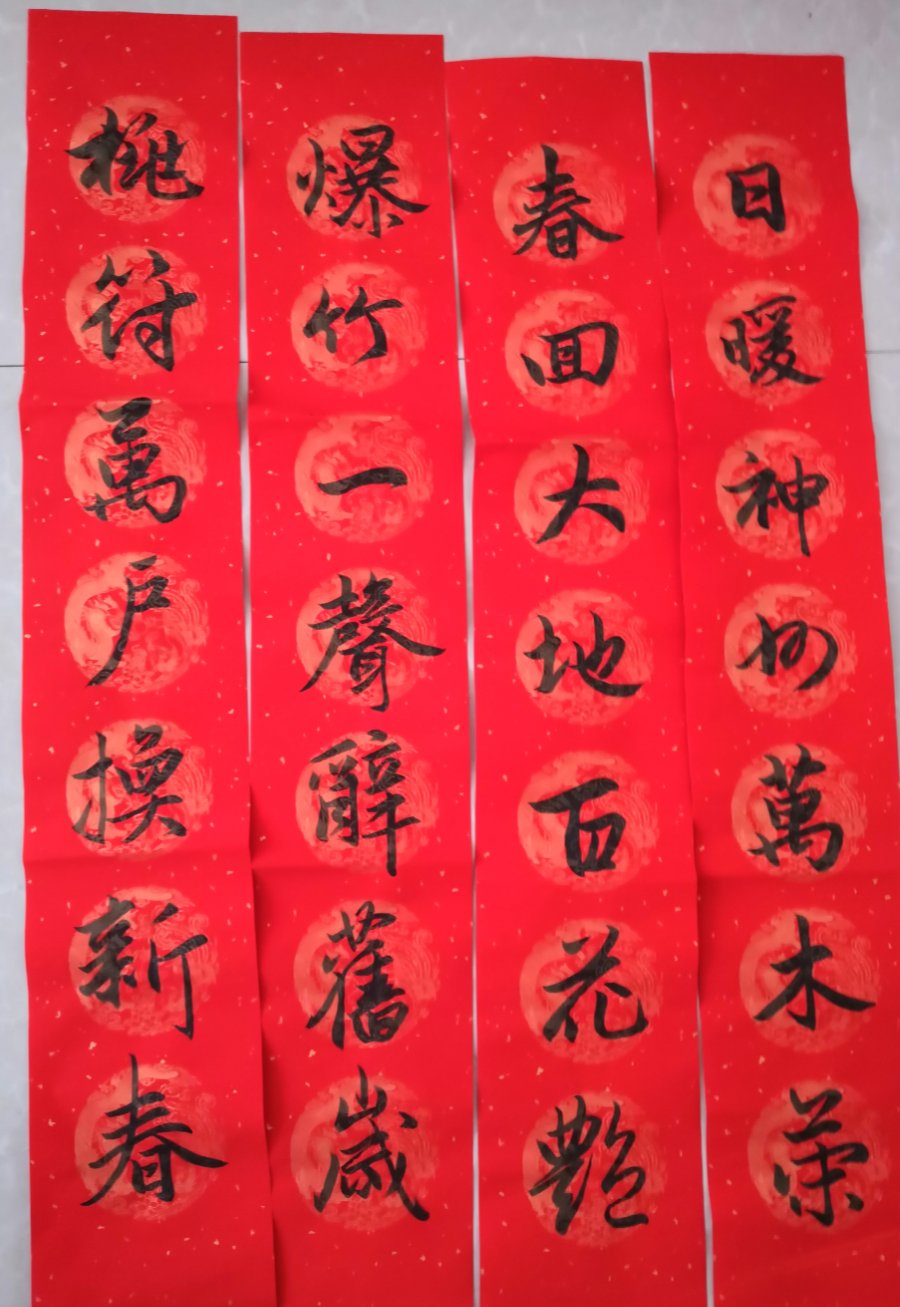 日暖神州萬木榮
春回大地百花艷
爆竹一聲辭舊歲
桃符萬戶換新春